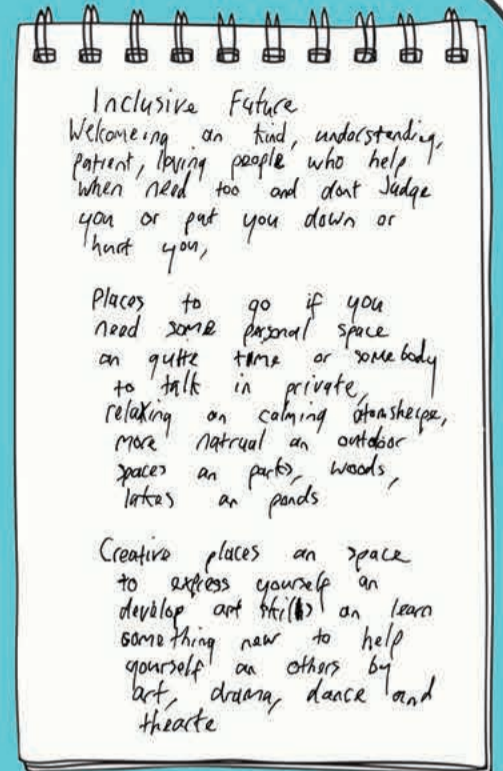 Inclusive Future
Welcomeing an kind, understanding,
patient, loving people who help
when need too and dont Judge
you or put you down or
hurt you,
Places to go if you
need some personal space
an quite time or somebody
to talk in private,
relaxing an calming atomsherpe,
more natrual an outdoor
spaces an parks, woods,
lakes an ponds
Creative places an space
to express yourself an
develop art skills an learn
something new to help
yourself an others by
art, drama, dance and
thearte